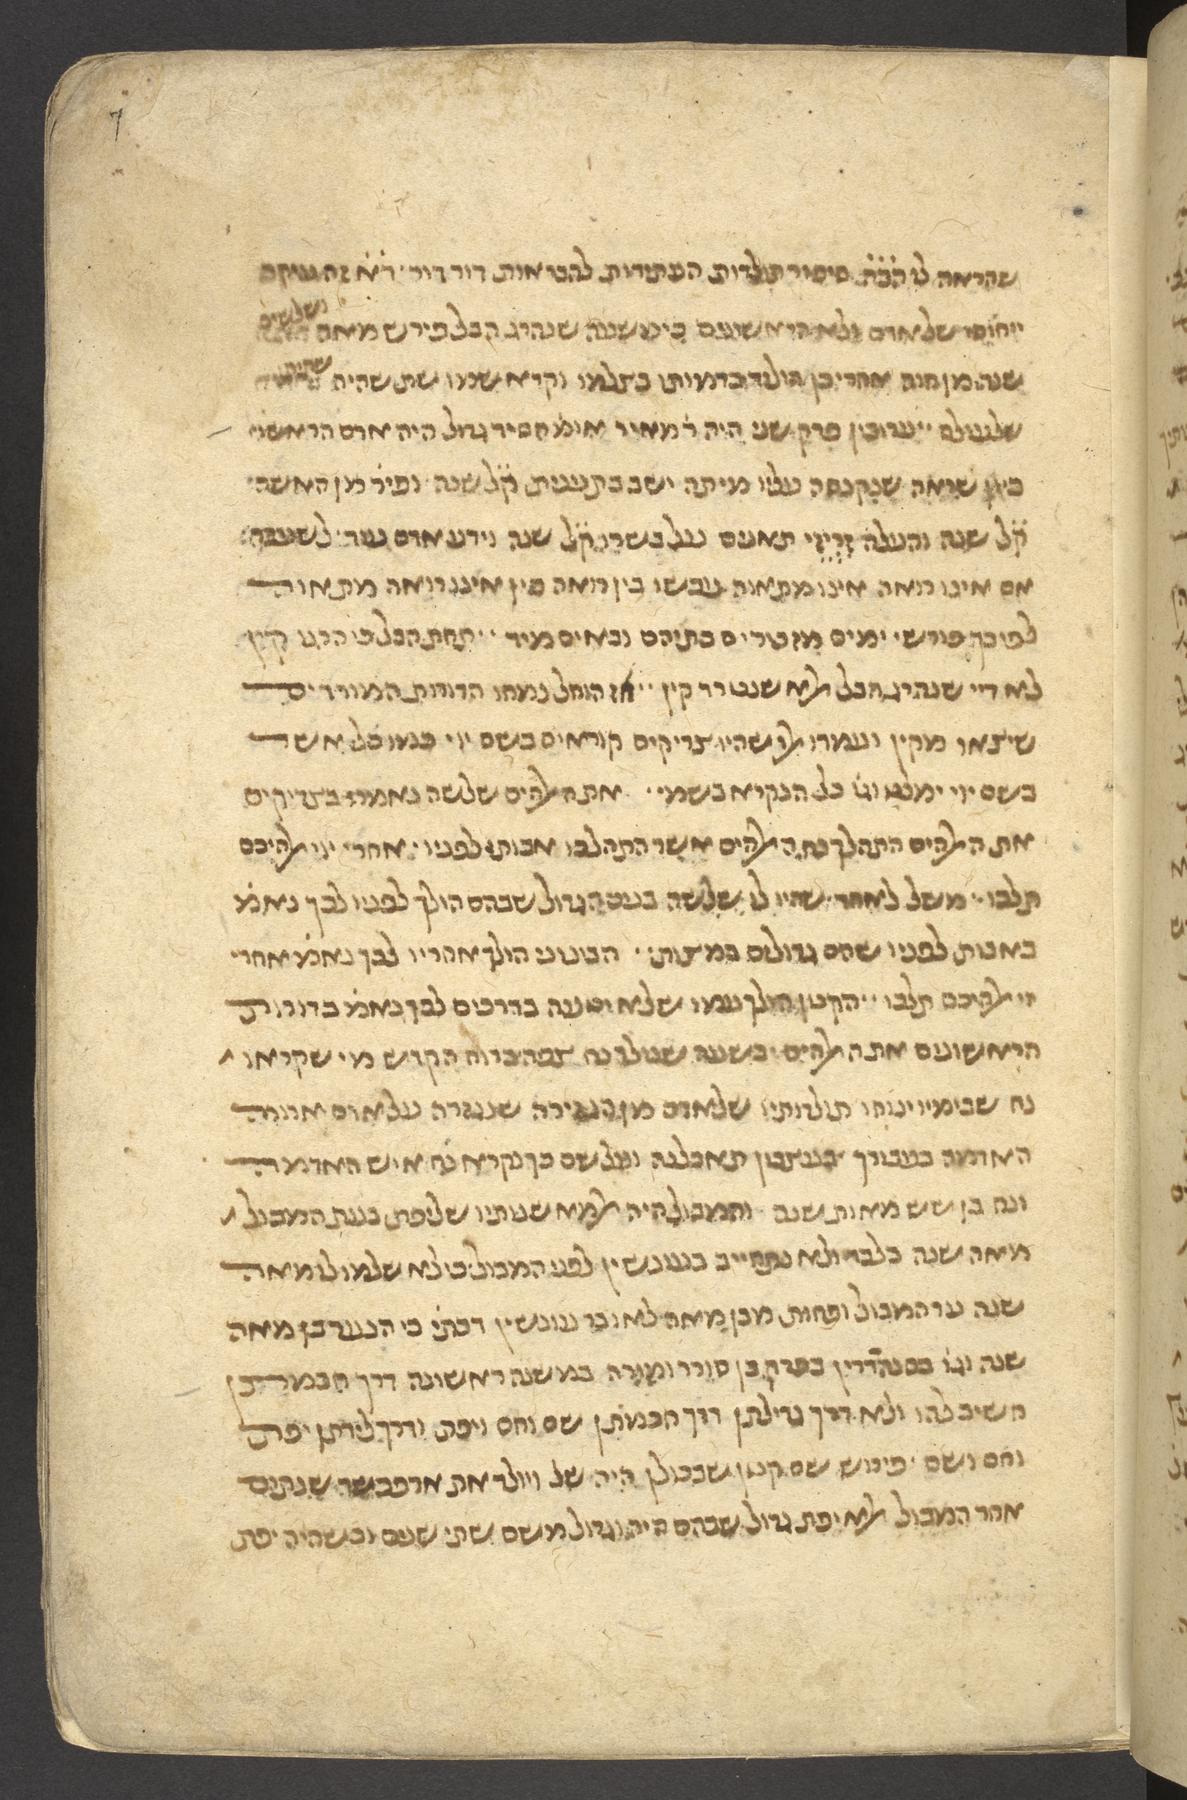 7
שהראה לו הב̇ה̇ סיפור תולדות העתידות להבראות דור דור ד̇א̇ זה
יוחסי שלאדם ולא הראשונים כימשנה שנהרג הבל פירש מאה ושלשים
שנה מן חוה אחרי כן הוליד בדמותו בצלמו וקרא שמו שת שהיה שתיה
שלעולם ׳׳ עירובין פרק שני היה ר̇ מאיר אומ̇ חסיד גדול היה אדם הראשון
כיון שראה שנקנסה עליו מיתה ישב בתענית ק̇ל̇ שנה ופיר̇ מן האשה
ק̇ל̇ שנה והעלה זרזי תאנים על בשרו ק̇ל̇ שנה וידע אדם עוד לשעבר
אם אינו רואה אינו מתאוה עכשו בין רואה בין אינו רואה מתאוה
לפיכך פורשי ימים מזכירים בתיהם ובאים מיד ׳׳ תחת הבל כי הרגו קין
לא דיי שנהרג הבל אלא שנטרד קין ׳׳ אז הוחל נמחו הדורות המורדים
שיצאו מקין ועמדו אלו שהיו צדיקים קוראים בשם יוי כמו כל אשר
בשם יוי ימלט וג̇ו̇ כל הנקרא בשמי ׳׳ את האלהים שלשה נאמרו בצדיקים
את האלהים התהלך נח האלהים אשר התהלכו אבותי לפניו אחרי יוי אלהיכם
תלכו ׳ משל לאחד שהיו לו שלשה בנים הגדול שבהם הולך לפניו לכך נאמ̇
באבות לפניו שהם גדולים במצות ׳׳ הבינוני הולך אחריו לכך נאמ̇ אחרי
יוי אלהיכם תלכו ׳׳ הקטון הולך עמו שלא יטעה בדרכים לכך נאמ̇ בדורות
הראשונים את האלהים בשעה שנולד נח צפה ברוח הקדש מי שקראו
נח שבימיו ינוחו תולדותיו שלאדם מן הגזירה שנגזרה על אדם ארורה
האדמה בעבורך בעצבון תאכלנה ועל שם כך נקרא נח איש האדמה
ונח בן שש מאות שנה והמבול היה אלמא שנותיו שליפת בעת המבול
מאה שנה בלבד ולא נתחייב בעונשין לפני המבול כי לא שלמו לו מאה
שנה עד המבול ופחות מבן מאה לאו בר עונשין דכת̇ כי הנער בן מאה
שנה וג̇ו̇ בסנהדרין בפרק בן סורר ומורה במשנה ראשונה דרך חכמתן
חשיב להו ולא דרך גדילתן דרך חכמתן שם וחם ויפת ודרך לידתן יפת
וחם ושם ׳ פירוש שם קטון שבכולן היה של ויולד את ארפכשד שנתים
אחר המבול אלא יפת גדול שבהם היה וגדול משם שתי שנים וכשהיה יפת